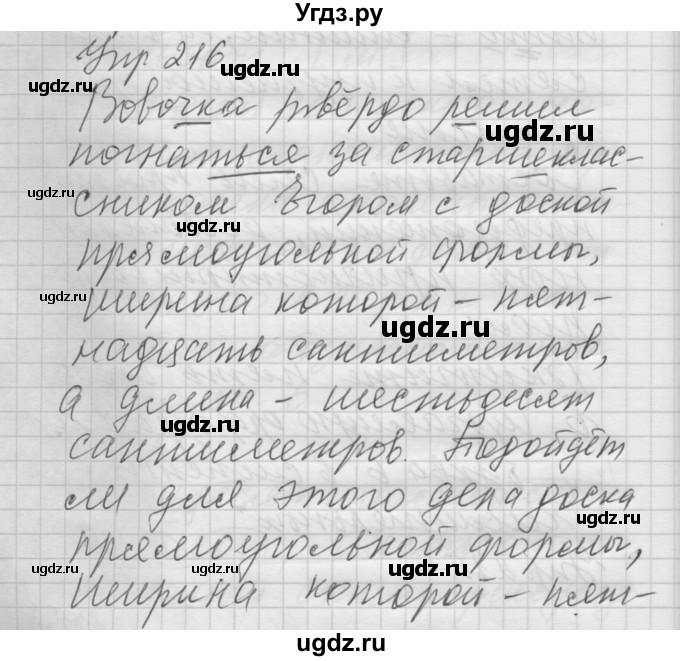 Угдз.ру
Упр 216
ugdz.ru
Вовочка твёрдо решил
ugdz.ru
погнаться за старшеклас-
ugdz.ru
ugdz.ru
сником Егором с доской
прямоугольной формы,
ugdz.ru
ширина которой – пят-
ugdz.ru
надцать сантиметров,
а длина – шестьдесят
ugdz.ru
сантиметров. Подойдёт
ли для этого дела доска
ugdz.ru
прямоугольной формы,
ugdz.ru
ugdz.ru
ширина которой – пят-
ugdz.ru